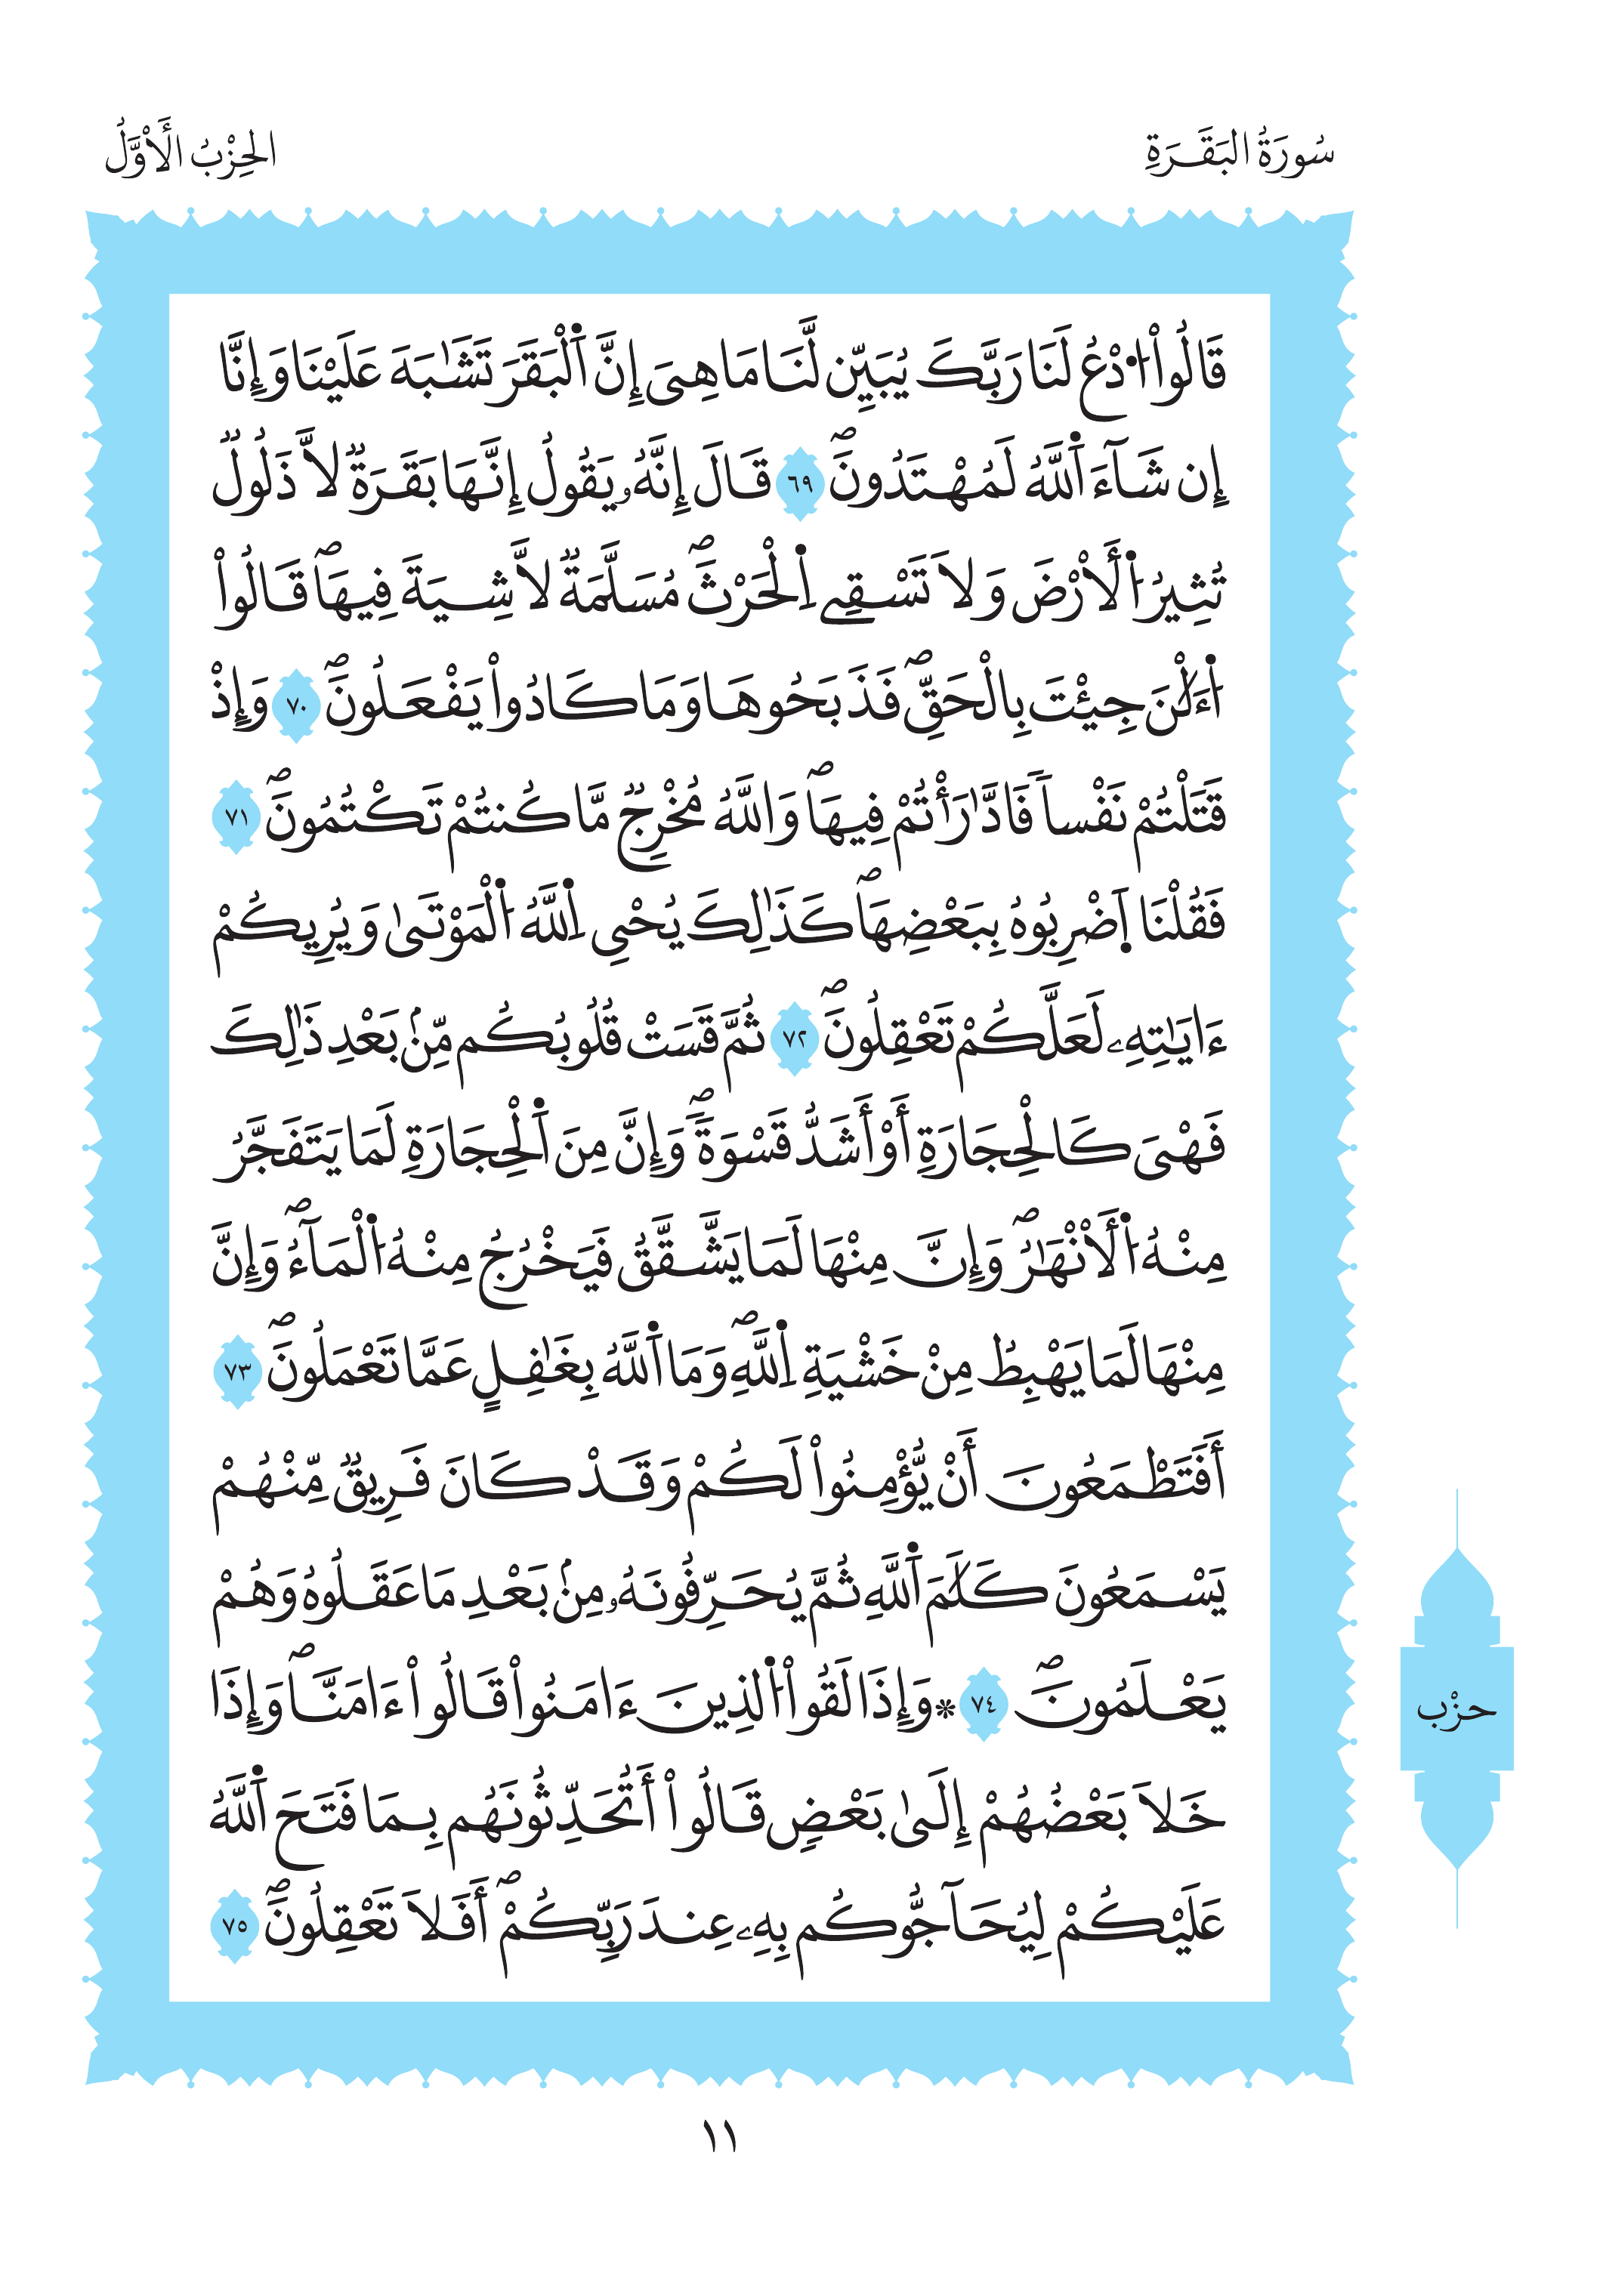 سُورَةُ البَقَرَةِ
الحِزْبُ الَاوَّلُ
قَالُواْ اُ۟دْعُ لَنَا رَبَّكَ يُبَيِّن لَّنَا مَا هِىَ إِنَّ اَ۬لْبَقَرَ تَشَٰبَهَ عَلَيْنَا وَإِنَّا
إِن شَآءَ اَ۬للَّهُ لَمُهْتَدُونَۖ ٦٩ قَالَ إِنَّهُۥ يَقُولُ إِنَّهَا بَقَرَةٞ لَّا ذَلُولٞ
تُثِيرُ اُ۬لْأَرْضَ وَلَا تَسْقِے اِ۬لْحَرْثَۖ مُسَلَّمَةٞ لَّا شِيَةَ فِيهَاۖ قَالُواْ
اُ۬لَٰٔنَ جِيئْتَ بِالْحَقِّۖ فَذَبَحُوهَا وَمَا كَادُواْ يَفْعَلُونَۖ ٧٠ وَإِذْ
قَتَلْتُمْ نَفْساٗ فَادَّٰرَأْتُمْ فِيهَاۖ وَاللَّهُ مُخْرِجٞ مَّا كُنتُمْ تَكْتُمُونَۖ ٧١
فَقُلْنَا اَ۪ضْرِبُوهُ بِبَعْضِهَاۖ كَذَٰلِكَ يُحْيِ اِ۬للَّهُ اُ۬لْمَوْتَىٰ وَيُرِيكُمْ
ءَايَٰتِهِۦ لَعَلَّكُمْ تَعْقِلُونَۖ ٧٢ ثُمَّ قَسَتْ قُلُوبُكُم مِّنۢ بَعْدِ ذَٰلِكَ
فَهْىَ كَالْحِجَارَةِ أَوْ أَشَدُّ قَسْوَةٗۖ وَإِنَّ مِنَ اَ۬لْحِجَارَةِ لَمَا يَتَفَجَّرُ
مِنْهُ اُ۬لْأَنْهَٰرُۖ وَإِنَّ مِنْهَا لَمَا يَشَّقَّقُ فَيَخْرُجُ مِنْهُ اُ۬لْمَآءُۖ وَإِنَّ
مِنْهَا لَمَا يَهْبِطُ مِنْ خَشْيَةِ اِ۬للَّهِۖ وَمَا اَ۬للَّهُ بِغَٰفِلٍ عَمَّا تَعْمَلُونَۖ ٧٣
أَفَتَطْمَعُونَ أَنْ يُّؤْمِنُواْ لَكُمْ وَقَدْ كَانَ فَرِيقٞ مِّنْهُمْ
يَسْمَعُونَ كَلَٰمَ اَ۬للَّهِ ثُمَّ يُحَرِّفُونَهُۥ مِنۢ بَعْدِ مَا عَقَلُوهُ وَهُمْ
يَعْلَمُونَۖ ٧٤ * وَإِذَا لَقُواْ اُ۬لذِينَ ءَامَنُواْ قَالُواْ ءَامَنَّاۖ وَإِذَا
خَلَا بَعْضُهُمْ إِلَىٰ بَعْضٍ قَالُواْ أَتُحَدِّثُونَهُم بِمَا فَتَحَ اَ۬للَّهُ
عَلَيْكُمْ لِيُحَآجُّوكُم بِهِۦ عِندَ رَبِّكُمْۖ أَفَلَا تَعْقِلُونَۖ ٧٥
حزْب
١١